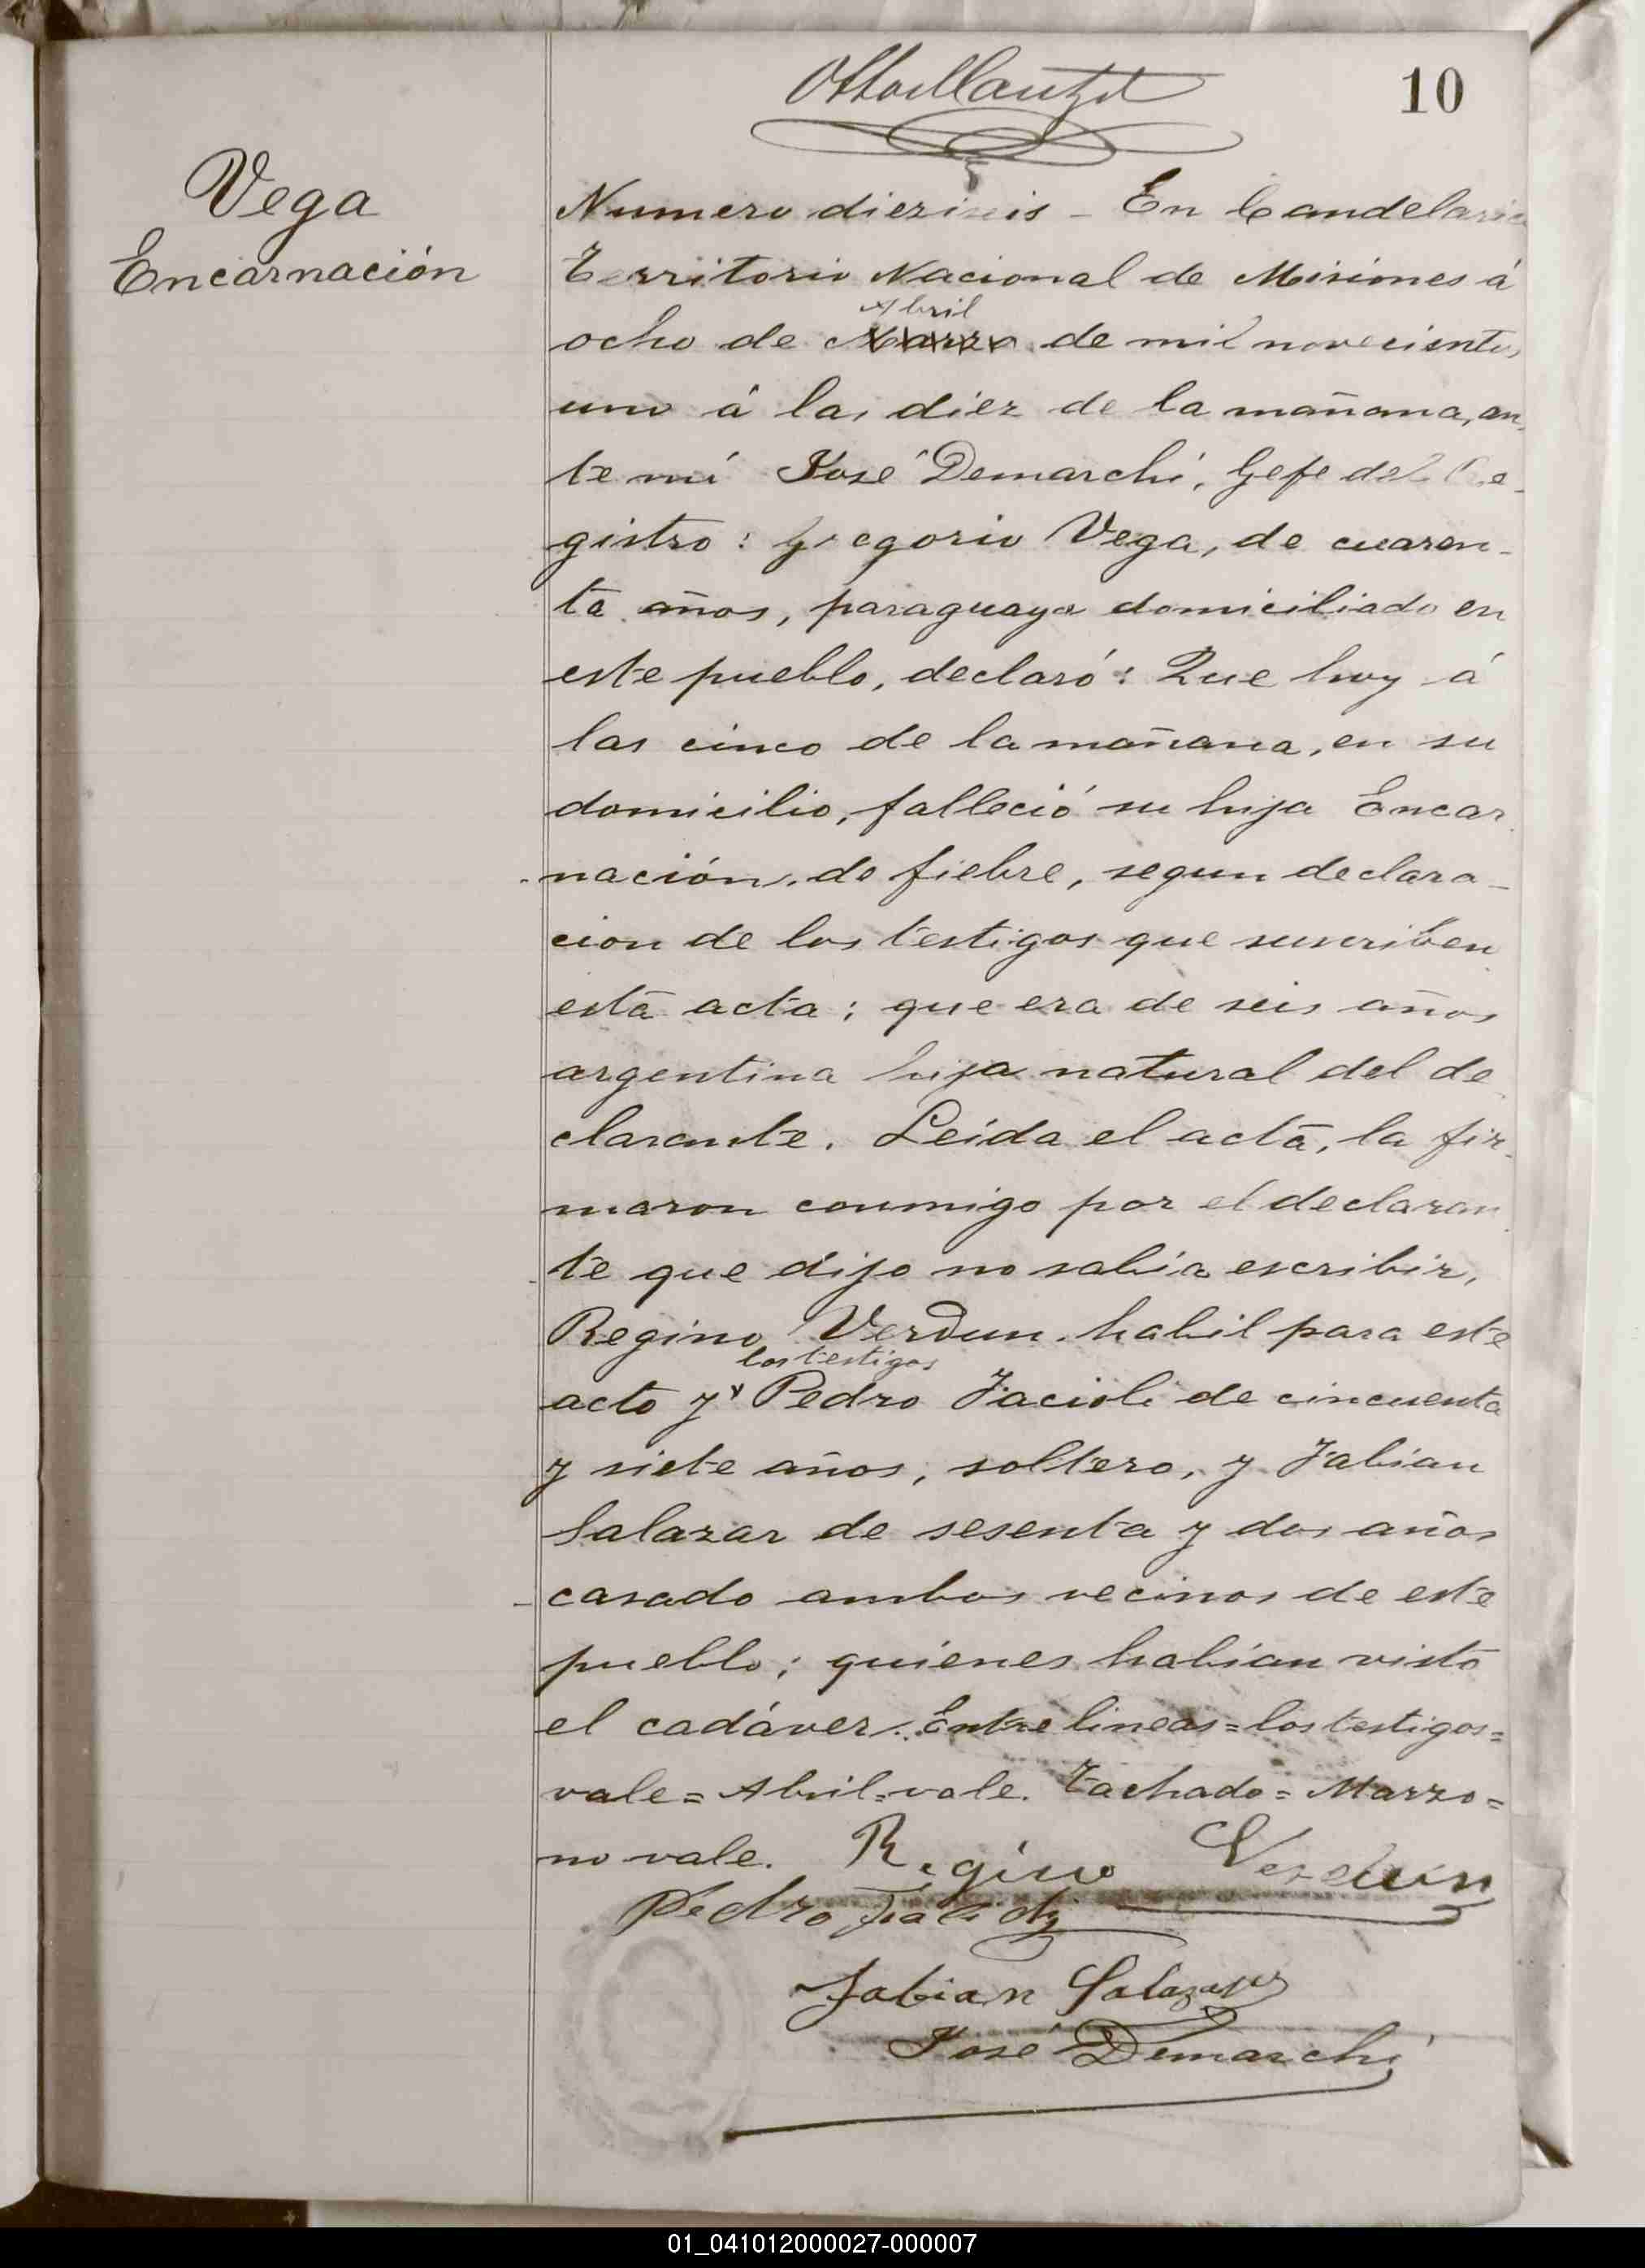 10
Vega
Encarnación
Numero diezi_eis - En Candelaria
Territorio Nacional de Misiones á
Abril
ocho de Marzo de mil novecientos
uno á las diez de la mañana, an-
te mí José Demarchi, Gefe del Re-
gistro: Gregorio Vega, de cuaren-
ta años, paraguayo domiciliado en
este pueblo, declaró: Que hoy á
las cinco de la mañana, en su
domicilio, falleció su hija Encar-
nación, de fiebre, segun declara-
cion de los testigos que suscriben
esta acta; que era de seis años
argentina hija natural del de-
clarante. Leida el acta, la fir-
maron conmigo por el declaran-
te que dijo no sabia escribir,
Regino Verdun, habil para este
los testigos
acto y Pedro Facioli de cincuenta
y siete años, soltero, y Fabian
Salazar de sesenta y dos años
casado ambos vecinos de este
pueblo; quienes habian visto
el cadáver. Entre lineas=los testigos=
vale=Abril=vale. Tachado=Marzo=
no vale. Regino Verdun
Pedro
Fabian Salazar
José Demarchi
01_041012000027-000007